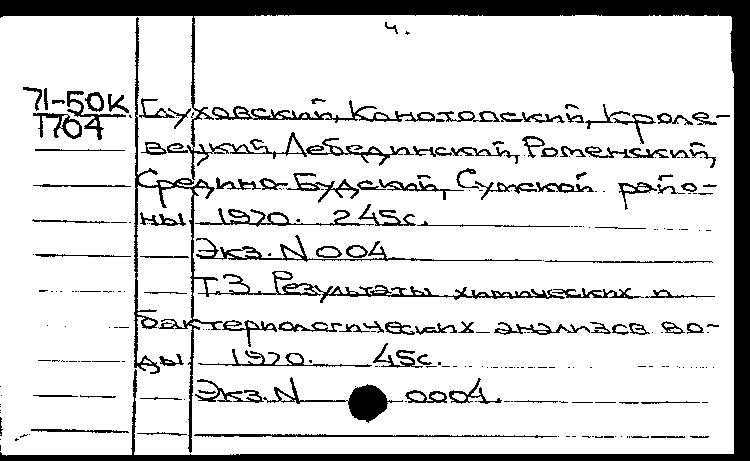 4.
71-50К Глуховский, Конотопский, Кроле-
1704
вецкий, Лебединский, Роменский,
Средино-Будский, Сумской райо-
ны. 1970. 245с.
Экз. N 004
Т.3. Результаты химических и
бактериологических анализов во-
ды 1970. 45с.
Экз. N 0004.